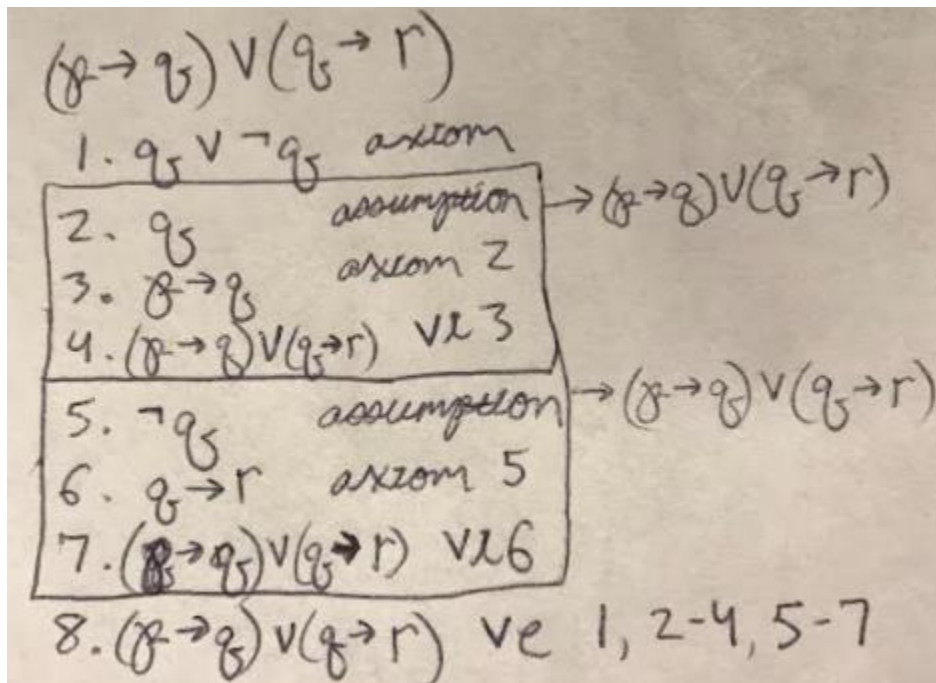 (p → q) ∨ (q → r)
1. q ∨ ¬q axiom
2. q assumption → (p → q) ∨ (q → r)
3. p → q axiom 2
4. (p → q) ∨ (q → r) ∨i 3
5. ¬q assumption → (p → q) ∨ (q → r)
6. q → r axiom 5
7. (p → q) ∨ (q → r) ∨i 6
8. (p → q) ∨ (q → r) ∨e 1, 2-4, 5-7